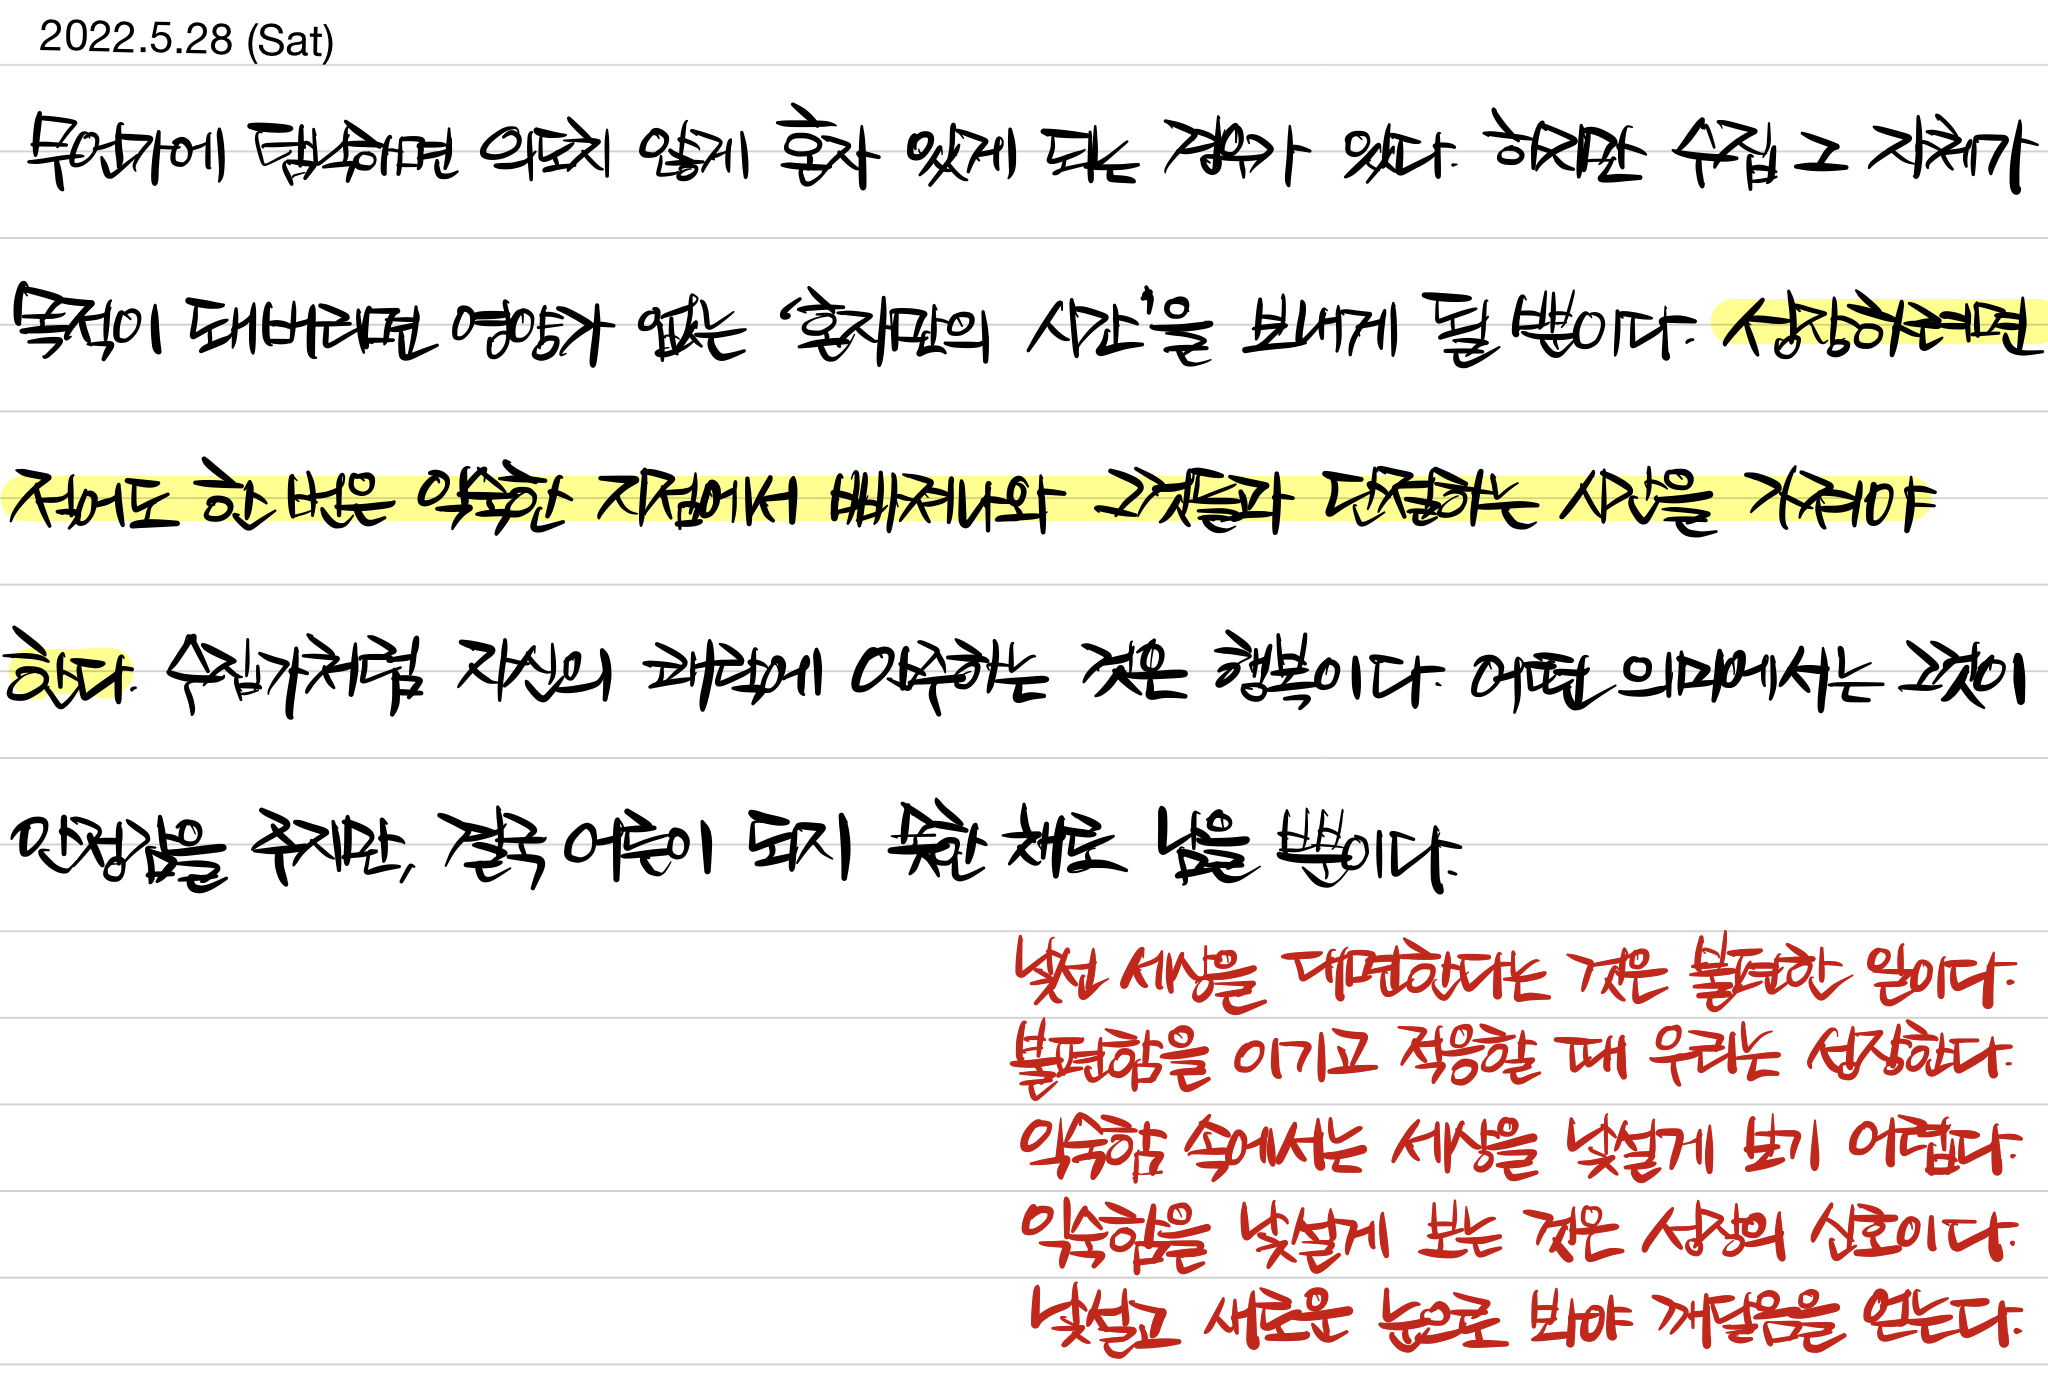 2022.5.28 (Sat)
무언가에 탐식하면 의도치 않게 혼자 있게 되는 경우가 있다. 하지만 수집 그 자체가
목적이 돼버리면 영양가 없는 '혼자만의 시간'을 보내게 될 뿐이다. 성장하려면
적어도 한 번은 익숙한 지점에서 빠져나와 그것들과 단절하는 시간을 가져야
한다. 수집가처럼 자신의 쾌락에 안주하는 것은 행복이다. 어떤 의미에서는 그것이
안정감을 주지만, 결국 어른이 되지 못한 채로 남을 뿐이다.
낯선 세상을 대면한다는 것은 불편한 일이다.
불편함을 이기고 적응할 때 우리는 성장한다.
익숙함 속에서는 세상을 낯설게 보기 어렵다.
익숙함을 낯설게 보는 것은 성장의 신호이다.
낯설고 새로운 눈으로 봐야 깨달음을 얻는다.